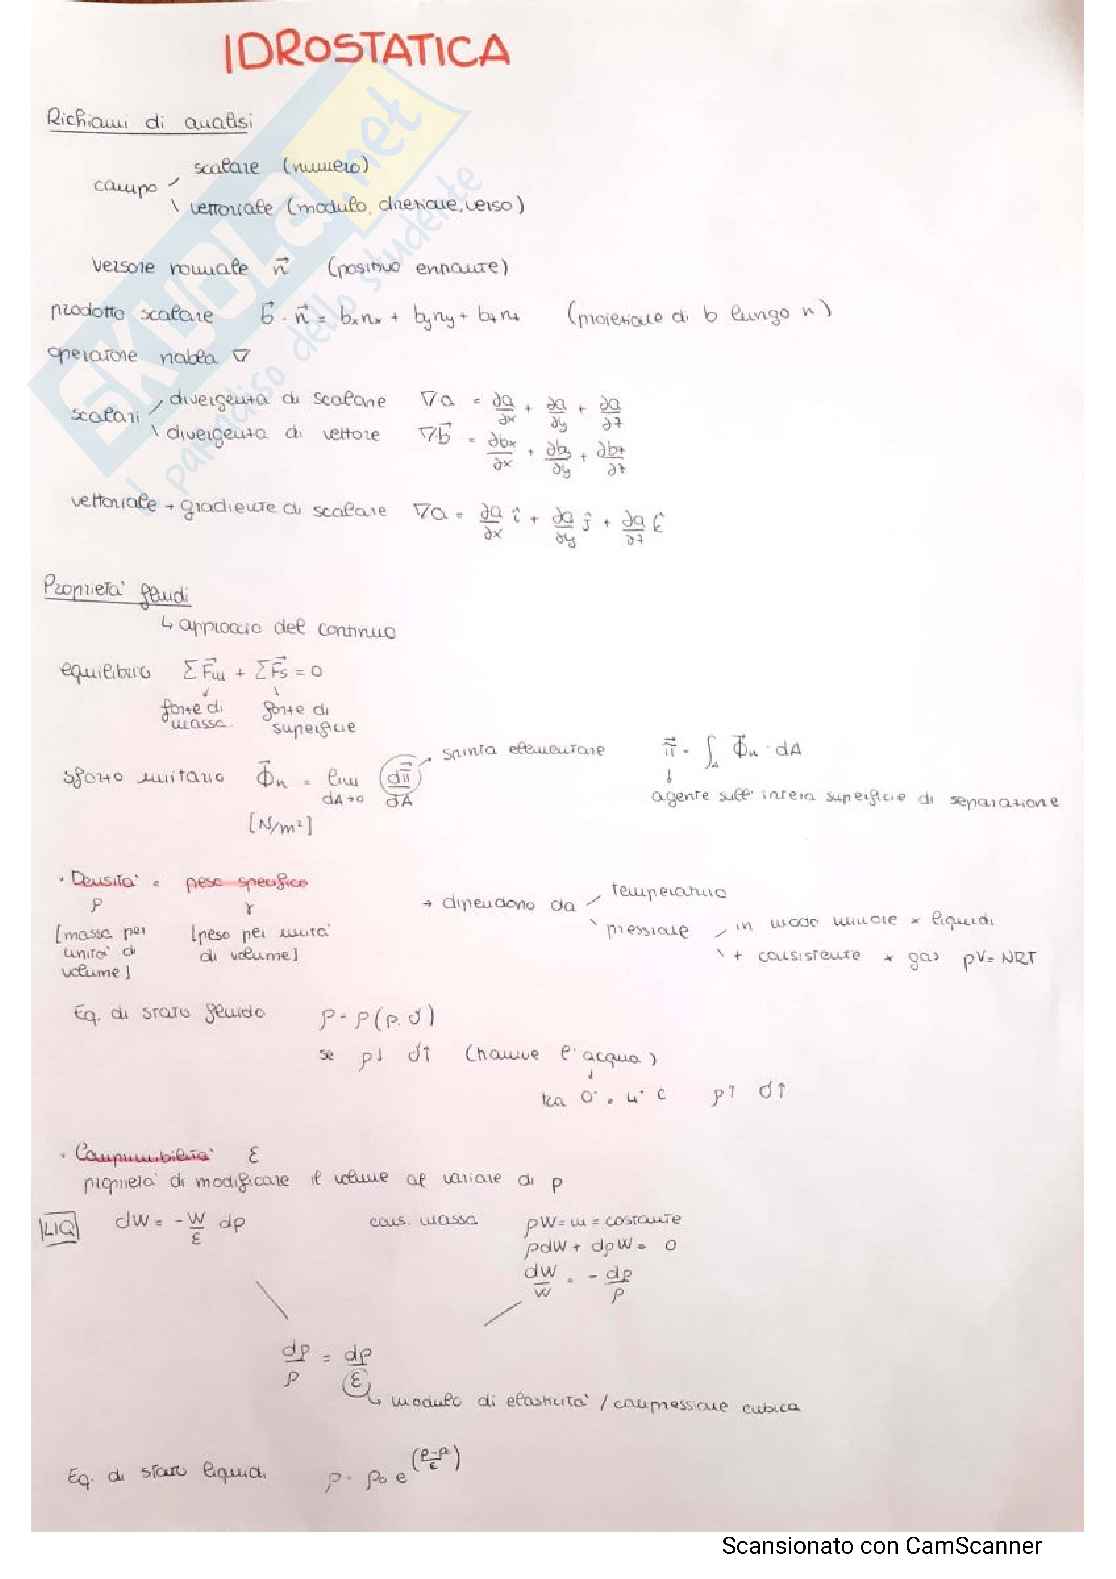 IDROSTATICA
Richiami di analisi
campo / scalare (numero)
\ vettoriale (modulo, direzione, verso)
versore normale n⃗ (positivo entrante)
prodotto scalare b⃗ · n⃗ = bₓnₓ + b_y n_y + b_z n_z (proiezione di b lungo n)
operatore nabla ∇
scalari / divergenza di scalare ∇a = ∂a/∂x + ∂a/∂y + ∂a/∂z
\ divergenza di vettore ∇b⃗ = ∂bx/∂x + ∂by/∂y + ∂bz/∂z
vettoriale → gradiente di scalare ∇a = ∂a/∂x î + ∂a/∂y ĵ + ∂a/∂z k̂
Proprietà fluidi
↳ approccio del continuo
equilibrio ΣF⃗m + ΣF⃗s = 0
forze di massa forze di superficie
sforzo unitario Φ⃗n = lim dA→0 dπ⃗/dA → spinta elementare π⃗ = ∫_A Φ⃗n · dA
[N/m²] agente sull'intera superficie di separazione
· Densità e peso specifico
ρ γ
[massa per unità di volume] [peso per unità di volume]
→ dipendono da / temperatura
\ pressione / in modo minore x liquidi
\ + consistente x gas pV = NRT
Eq. di stato fluido ρ = ρ(p, ϑ)
se ρ↓ ϑ↑ (tranne l'acqua)
tra 0° e 4° C ρ↑ ϑ↑
· Comprimibilità ε
proprietà di modificare il volume al variare di p
LIQ dW = -W/ε dp cons. massa ρW = m = costante
ρdW + dρW = 0
dW/W = - dρ/ρ
dρ/ρ = dp/ε
↳ modulo di elasticità / compressione cubica
Eq. di stato liquidi ρ = ρ₀ e
SKUOLA.net
il paradiso dello studente
Scansionato con CamScanner